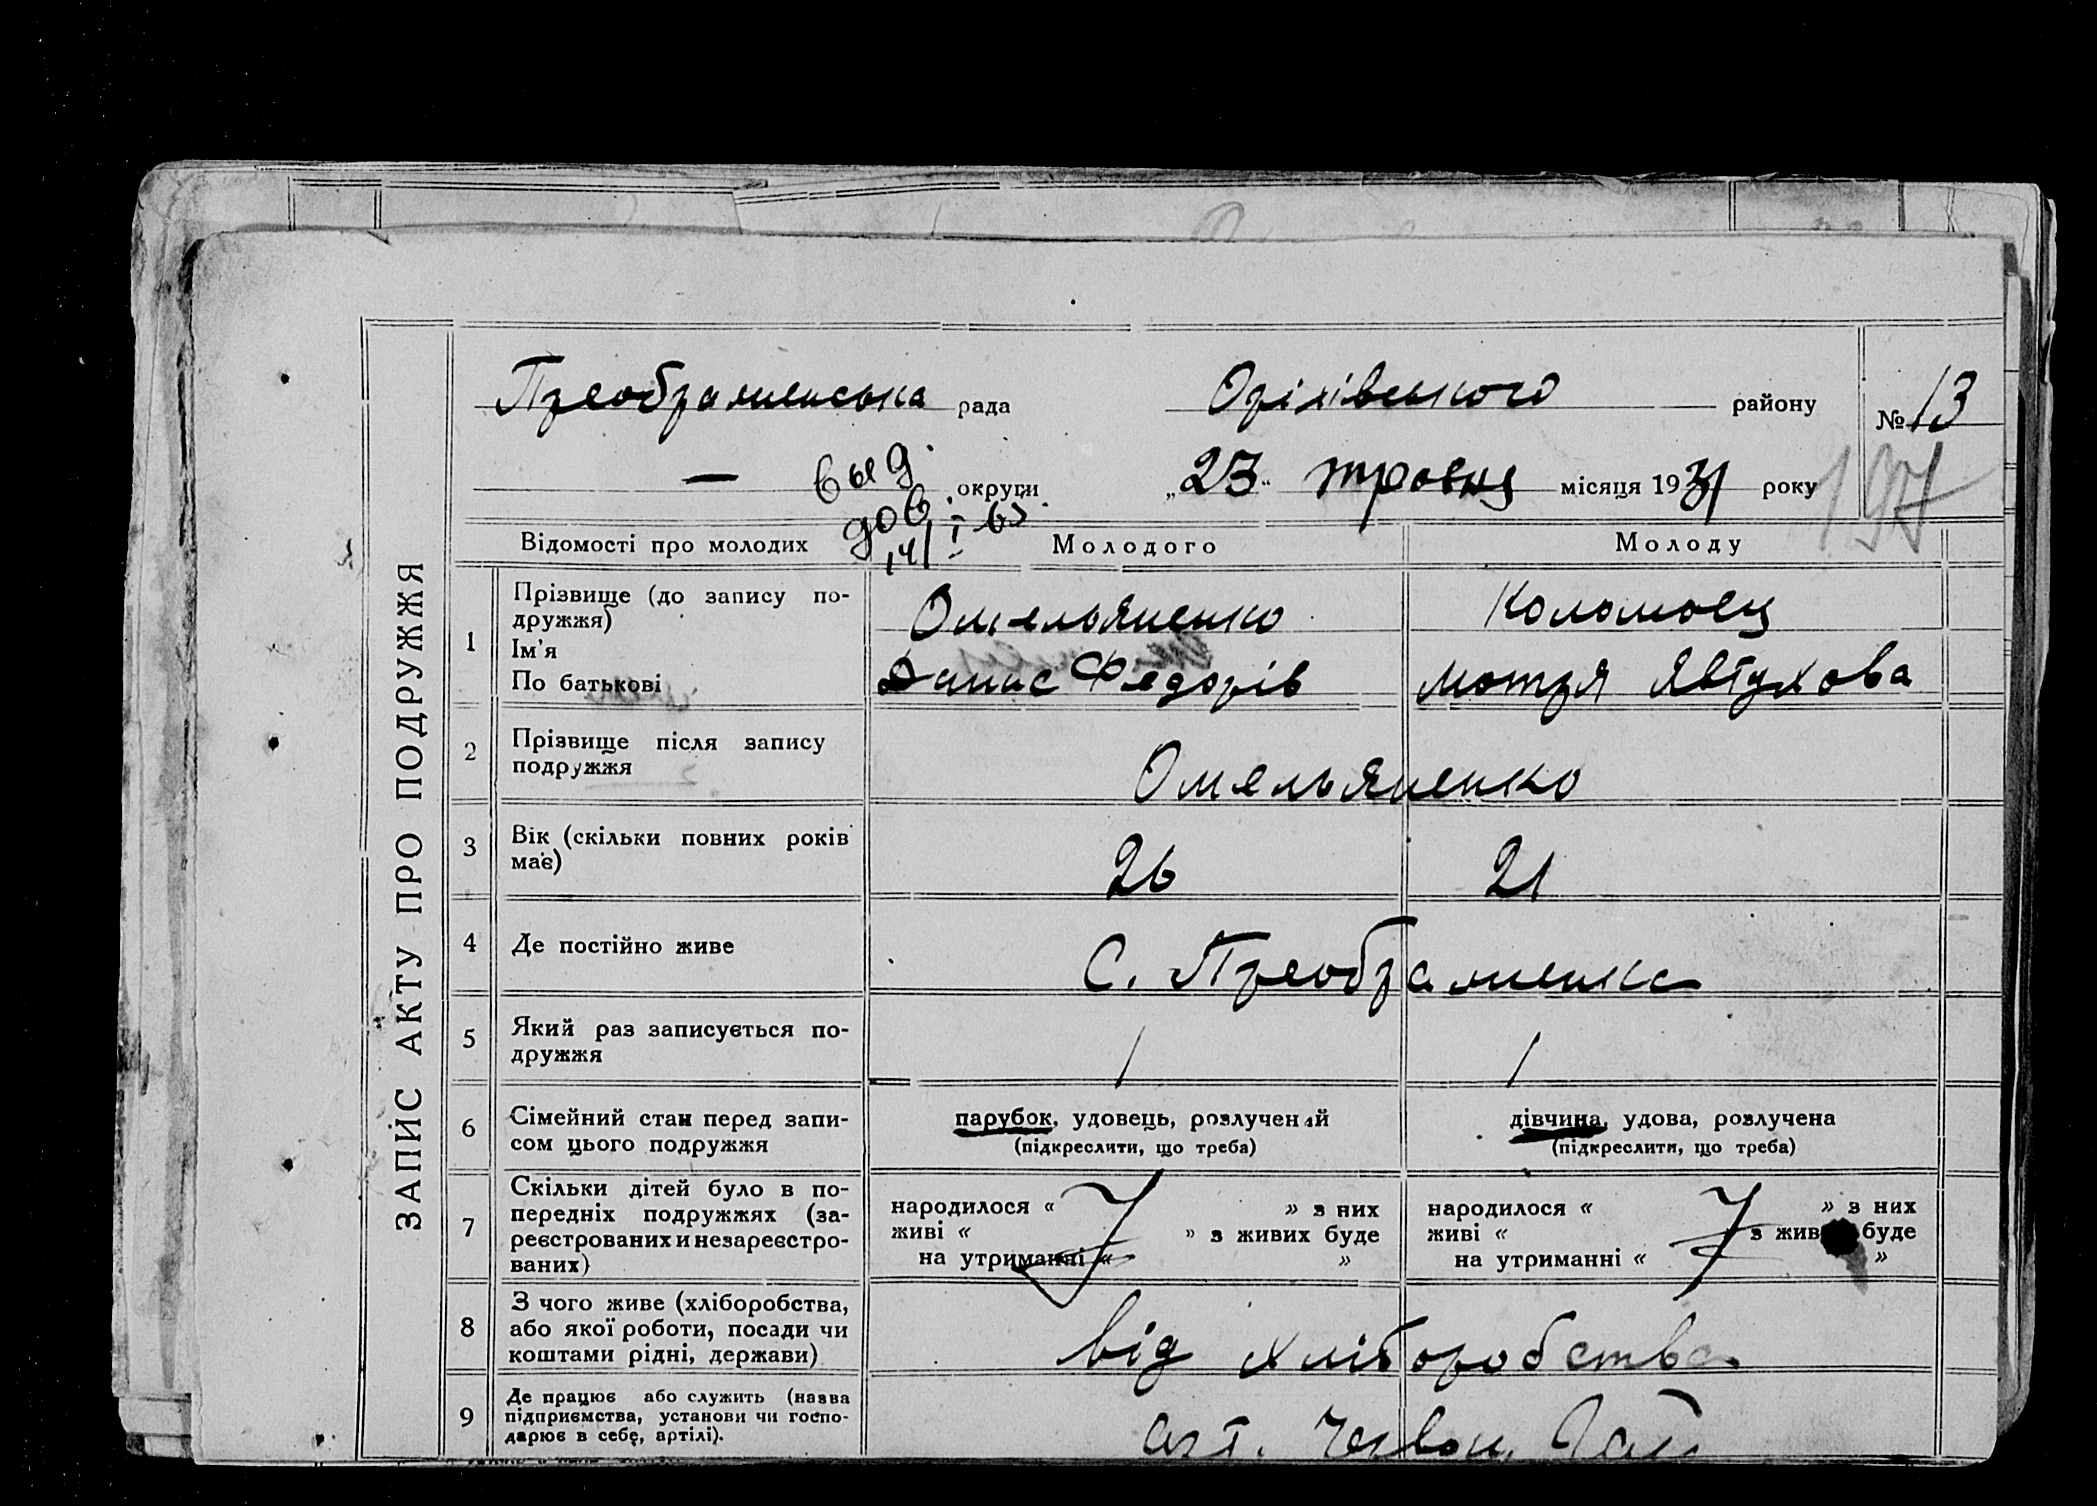 ЗАПИС АКТУ ПРО ПОДРУЖЖЯ
Преображенська рада Оріхівського району № 13
— округи „23" травня місяця 1931 року
197
выд.
дов.
14/I 63.
Відомості про молодих Молодого Молоду
1 Прізвище (до запису по-
дружжя) Омельяненко Коломоец
Ім'я
По батькові Данис Федорів Мотря Явтухова
2 Прізвище після запису
подружжя Омельяненко
3 Вік (скільки повних років
має) 26 21
4 Де постійно живе С. Преображенка
5 Який раз записується по-
дружжя 1 1
6 Сімейний стан перед запи-
сом цього подружжя
парубок, удовець, розлучений
(підкреслити, що треба)
дівчина, удова, розлучена
(підкреслити, що треба)
7 Скільки дітей було в по-
передніх подружжях (за-
реєстрованих и незареєстро-
ваних)
народилося « » з них
живі « » з живих буде
на утриманні « »
народилося « » з них
живі « з жив буде
на утриманні « »
8 З чого живе (хліборобства,
або якої роботи, посади чи
коштами рідні, держави) від хліборобства
9 Де працює або служить (назва
підприємства, установи чи госпо-
дарює в себе, артілі). арт. Червон.